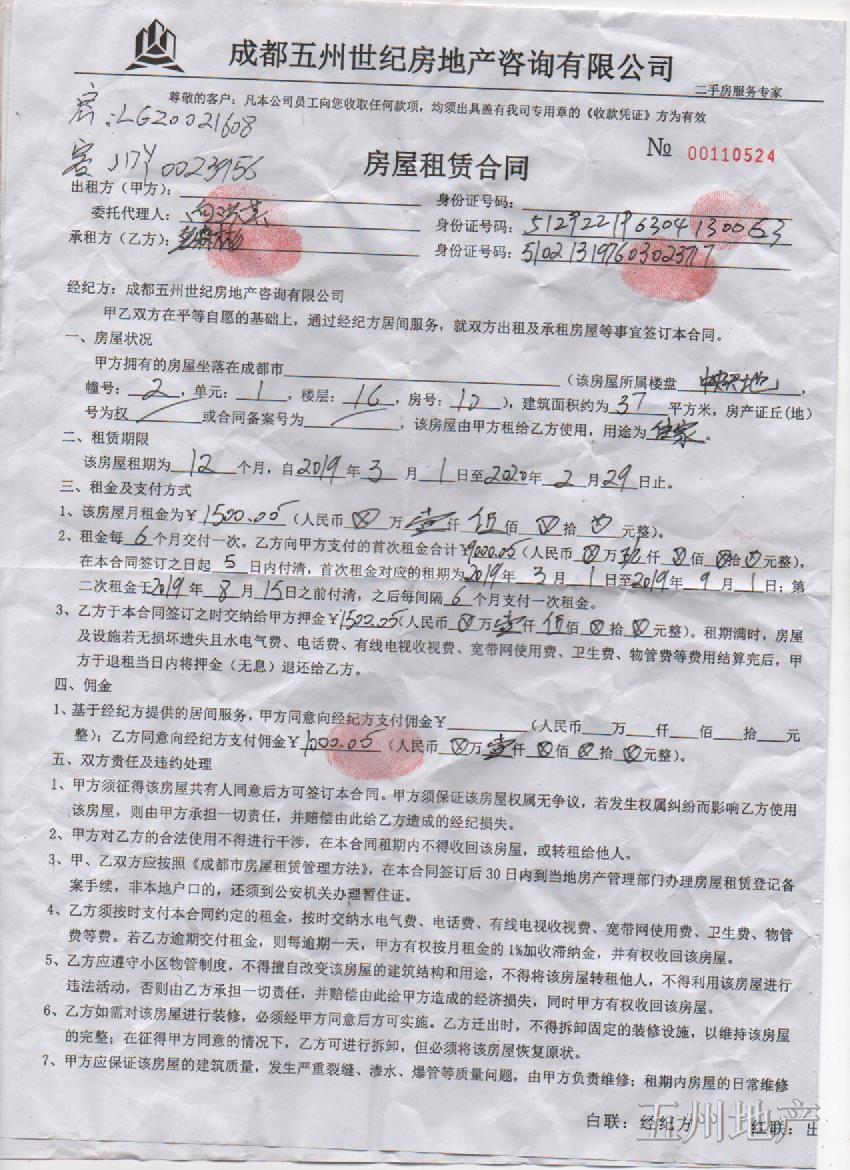 成都五州世纪房地产咨询有限公司
二手房服务专家
尊敬的客户：凡本公司员工向您收取任何款项，均须出具盖有我司专用章的《收款凭证》方为有效
房:LGZ0021608
客 0023956
№ 00110524
房屋租赁合同
出租方（甲方）： 身份证号码：
委托代理人： 身份证号码：512922196304130063
承租方（乙方）： 身份证号码：510213197603023717
经纪方：成都五州世纪房地产咨询有限公司
甲乙双方在平等自愿的基础上，通过经纪方居间服务，就双方出租及承租房屋等事宜签订本合同。
一、房屋状况
甲方拥有的房屋坐落在成都市 （该房屋所属楼盘 ，
幢号：2，单元：1，楼层：16，房号：10），建筑面积约为37平方米，房产证丘(地)
号为权 或合同备案号为 ，该房屋由甲方租给乙方使用，用途为住家。
二、租赁期限
该房屋租期为12个月，自2019年3月1日至2020年2月29日止。
三、租金及支付方式
1、该房屋月租金为￥1500.00（人民币⊗万壹仟伍佰⊗拾⊗元整）。
2、租金每6个月交付一次。乙方向甲方支付的首次租金合计￥9000.00（人民币⊗万玖仟⊗佰⊗拾⊗元整），
在本合同签订之日起5日内付清，首次租金对应的租期为2019年3月1日至2019年9月1日；第
二次租金于2019年8月15日之前付清，之后每间隔6个月支付一次租金。
3、乙方于本合同签订之时交纳给甲方押金￥1500.00（人民币⊗万壹仟伍佰⊗拾⊗元整）。租期满时，房屋
及设施若无损坏遗失且水电气费、电话费、有线电视收视费、宽带网使用费、卫生费、物管费等费用结算完后，甲
方于退租当日内将押金（无息）退还给乙方。
四、佣金
1、基于经纪方提供的居间服务，甲方同意向经纪方支付佣金￥ （人民币 万 仟 佰 拾 元
整）；乙方同意向经纪方支付佣金￥1000.00（人民币⊗万壹仟⊗佰⊗拾⊗元整）。
五、双方责任及违约处理
1、甲方须征得该房屋共有人同意后方可签订本合同。甲方须保证该房屋权属无争议，若发生权属纠纷而影响乙方使用
该房屋，则由甲方承担一切责任，并赔偿由此给乙方造成的经纪损失。
2、甲方对乙方的合法使用不得进行干涉，在本合同租期内不得收回该房屋，或转租给他人。
3、甲、乙双方应按照《成都市房屋租赁管理方法》，在本合同签订后30日内到当地房产管理部门办理房屋租赁登记备
案手续，非本地户口的，还须到公安机关办理暂住证。
4、乙方须按时支付本合同约定的租金，按时交纳水电气费、电话费、有线电视收视费、宽带网使用费、卫生费、物管
费等费。若乙方逾期交付租金，则每逾期一天，甲方有权按月租金的1%加收滞纳金，并有权收回该房屋。
5、乙方应遵守小区物管制度，不得擅自改变该房屋的建筑结构和用途，不得将该房屋转租他人，不得利用该房屋进行
违法活动，否则由乙方承担一切责任，并赔偿由此给甲方造成的经济损失，同时甲方有权收回该房屋。
6、乙方如需对该房屋进行装修，必须经甲方同意后方可实施。乙方迁出时，不得拆卸固定的装修设施，以维持该房屋
的完整；在征得甲方同意的情况下，乙方可进行拆卸，但必须将该房屋恢复原状。
7、甲方应保证该房屋的建筑质量，发生严重裂缝、渗水、爆管等质量问题，由甲方负责维修；租期内房屋的日常维修
白联：经纪方 红联：出
五州地产